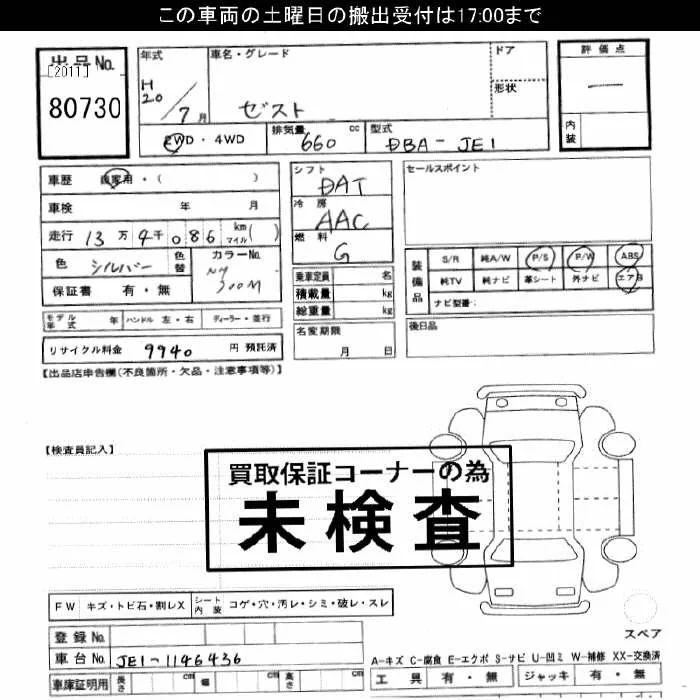 この車両の土曜日の搬出受付は17:00まで
出品No.
[2011]
80730
年式
H20/7月
車名・グレード
ゼスト
ドア
形状
評価点
―
内装
2WD・4WD
排気量 660 cc
型式 DBA-JE1
車歴 自家用・( )
車検 年 月
走行 13万4千086 km(マイル)
色 シルバー 色替 カラーNo. NH700M
保証書 有・無
シフト DAT
冷房 AAC
燃料 G
セールスポイント
装備品 S/R 純A/W P/S P/W ABS
純TV 純ナビ 革シート 外ナビ エアB
ナビ型番:
乗車定員 名
積載量 kg
総重量 kg
モデル年式 年 ハンドル 左・右 ディーラー・並行
名変期限
月 日
後日品
リサイクル料金 9940 円 預託済
【出品店申告欄(不良箇所・欠品・注意事項等)】
【検査員記入】
買取保証コーナーの為
未検査
FW キズ・トビ石・割レX シート内装 コゲ・穴・汚レ・シミ・破レ・スレ
スペア
登録No.
車台No. JE1-1146436
A-キズ C-腐食 E-エクボ S-サビ U-凹ミ W-補修 XX-交換済
車庫証明用 長さ cm 幅 cm 高さ cm
工具 有・無 ジャッキ 有・無